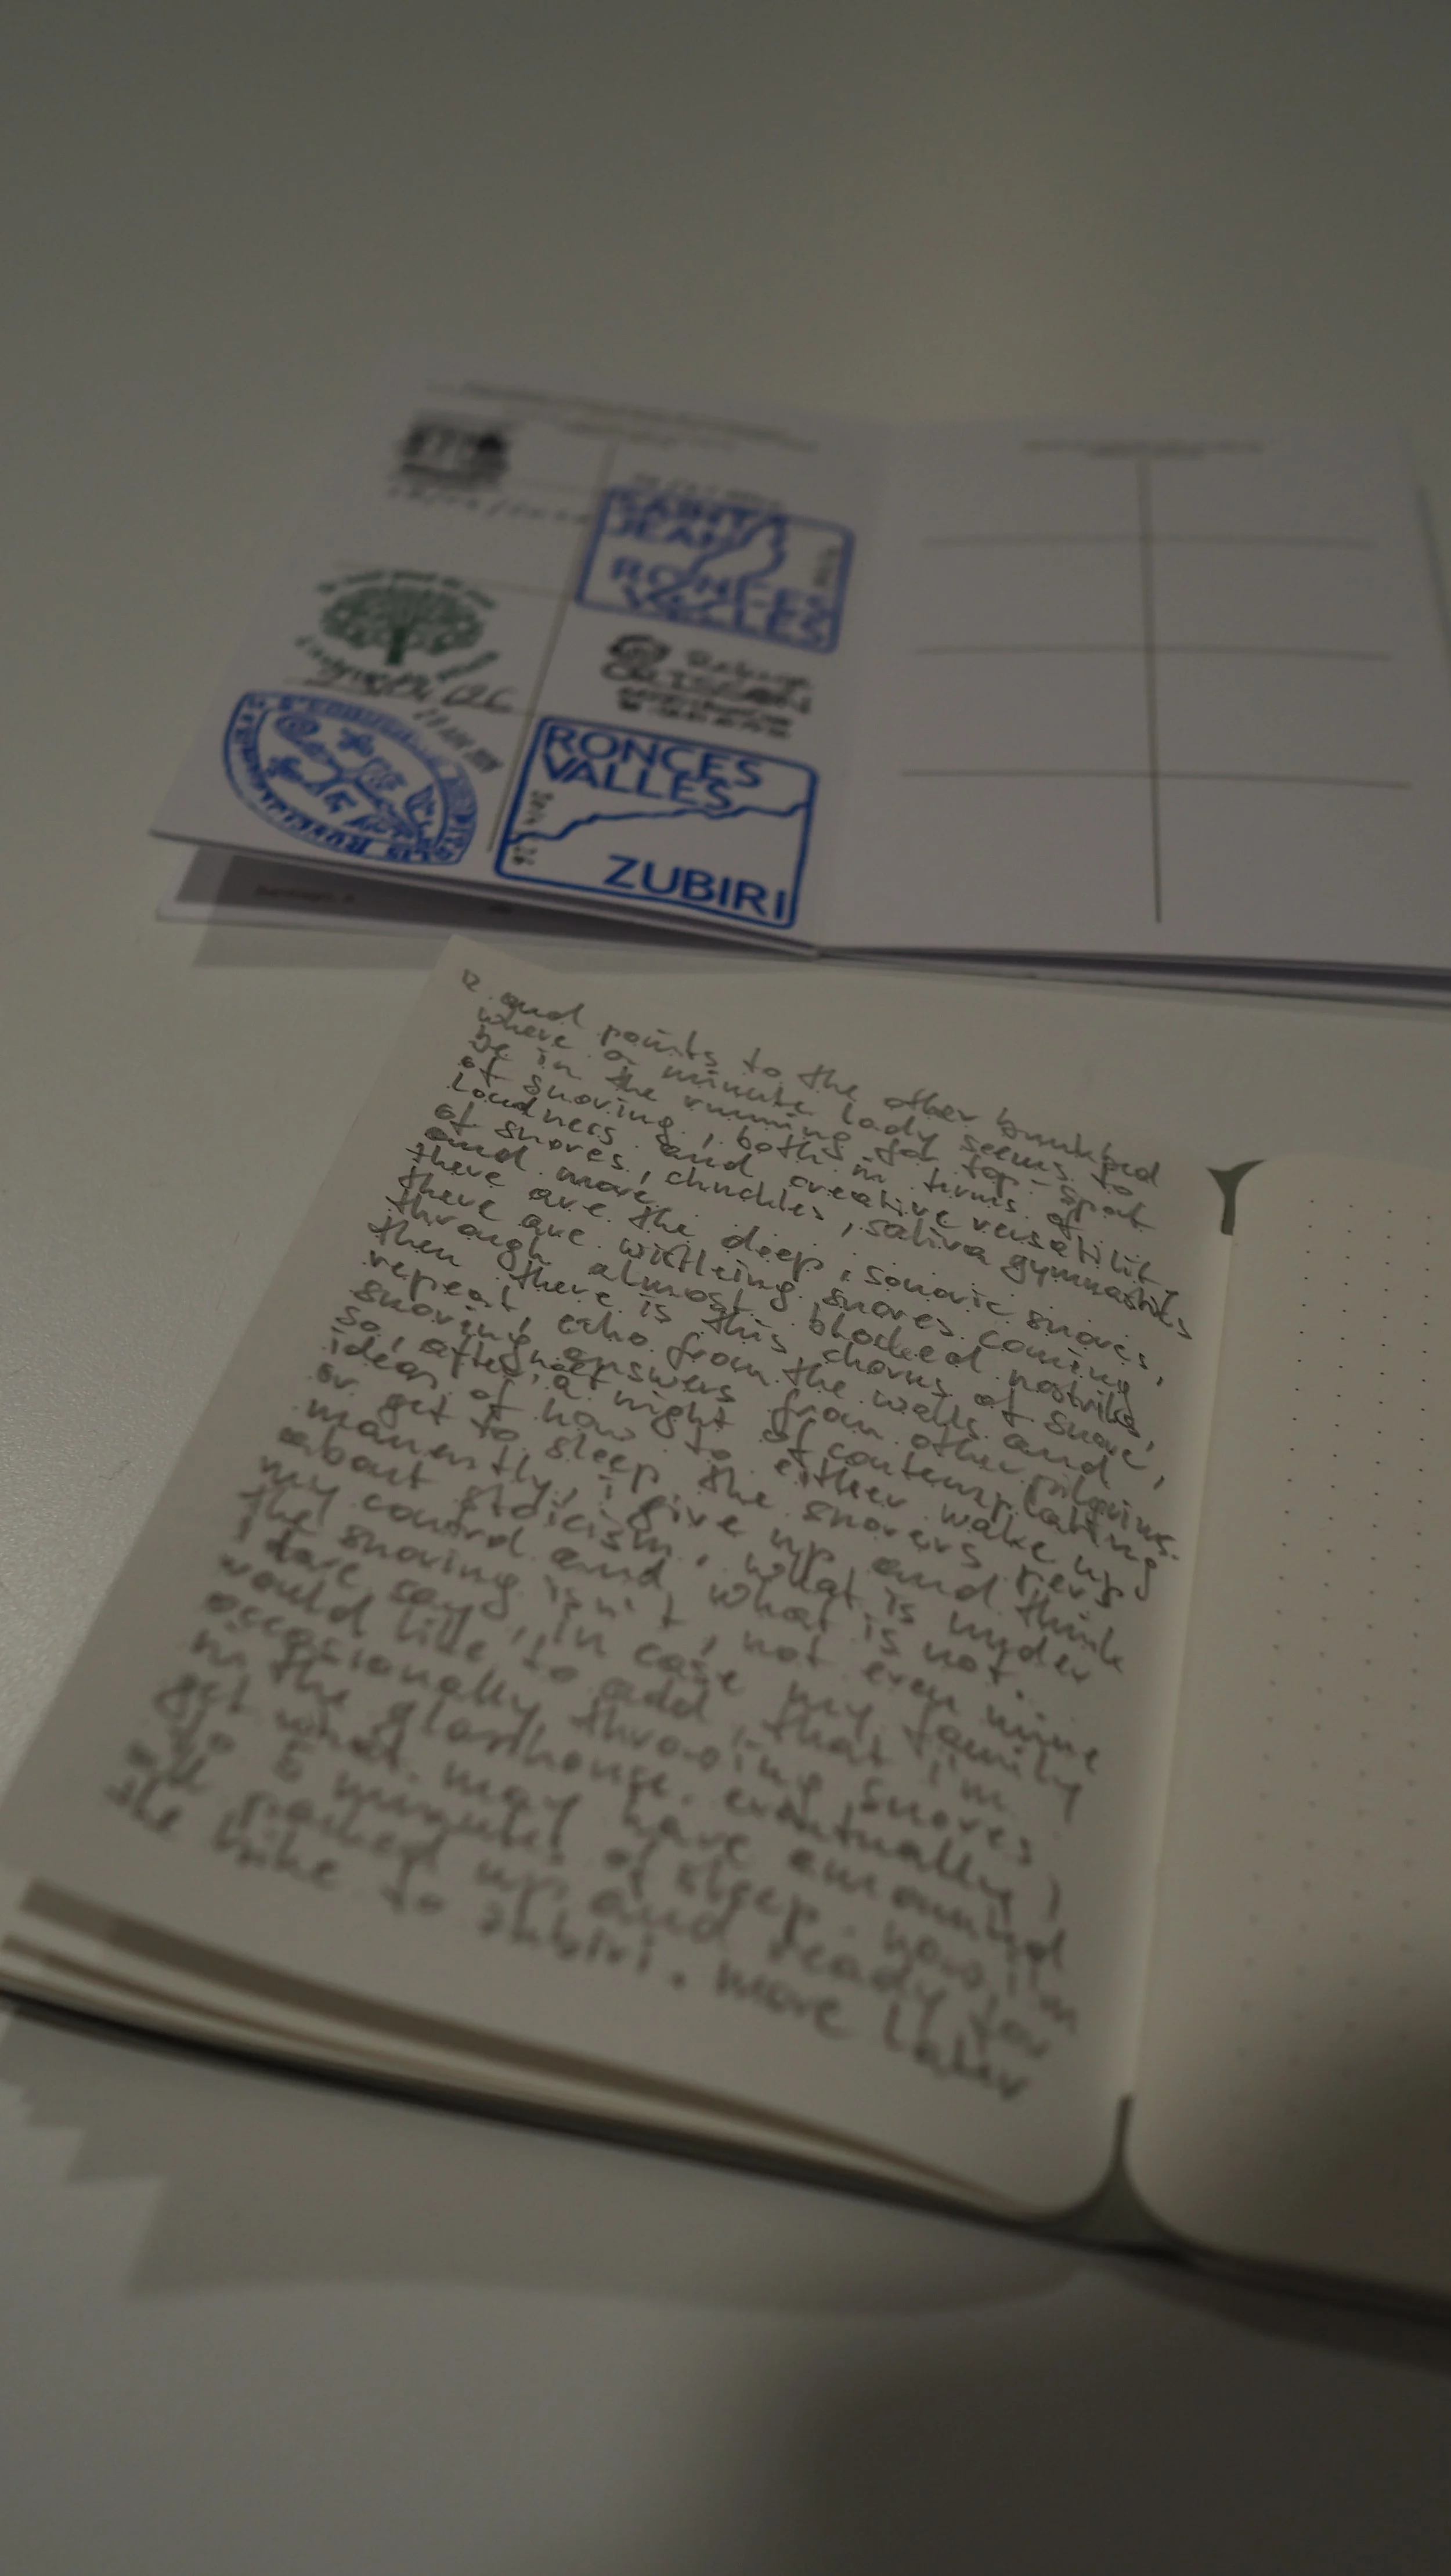 SAINT
JEAN
RONCES
VALLES
Refuge
ORISSON
RONCES
VALLES
ZUBIRI
12. and points to the other bunkbed
where a minute lady seems to
be in the running for top-spot
of snoring, both in terms of
loudness and creative versatility
of snores, chuckles, saliva gymnastics
and more.
there are the deep, sonoric snores,
there are wistleing snores coming
through almost blocked nostrils,
then there is this chorus of snore,
repeat, echo from the walls and
snoring answers from other pilgrims.
so, after half a night of contemplating
ideas of how to either wake up
or get to sleep the snorers per-
manently, i give up and think
about stoicism, what is under
my control and what is not.
the snoring isn't, not even mine
I dare say, in case my family
would like to add, that i'm
occasionally throwing snores
in the glasshouse. eventually i
get what may have amounted
to 5 minutes of sleep. now i'm
all packed up and ready for
the hike to zubiri. more later